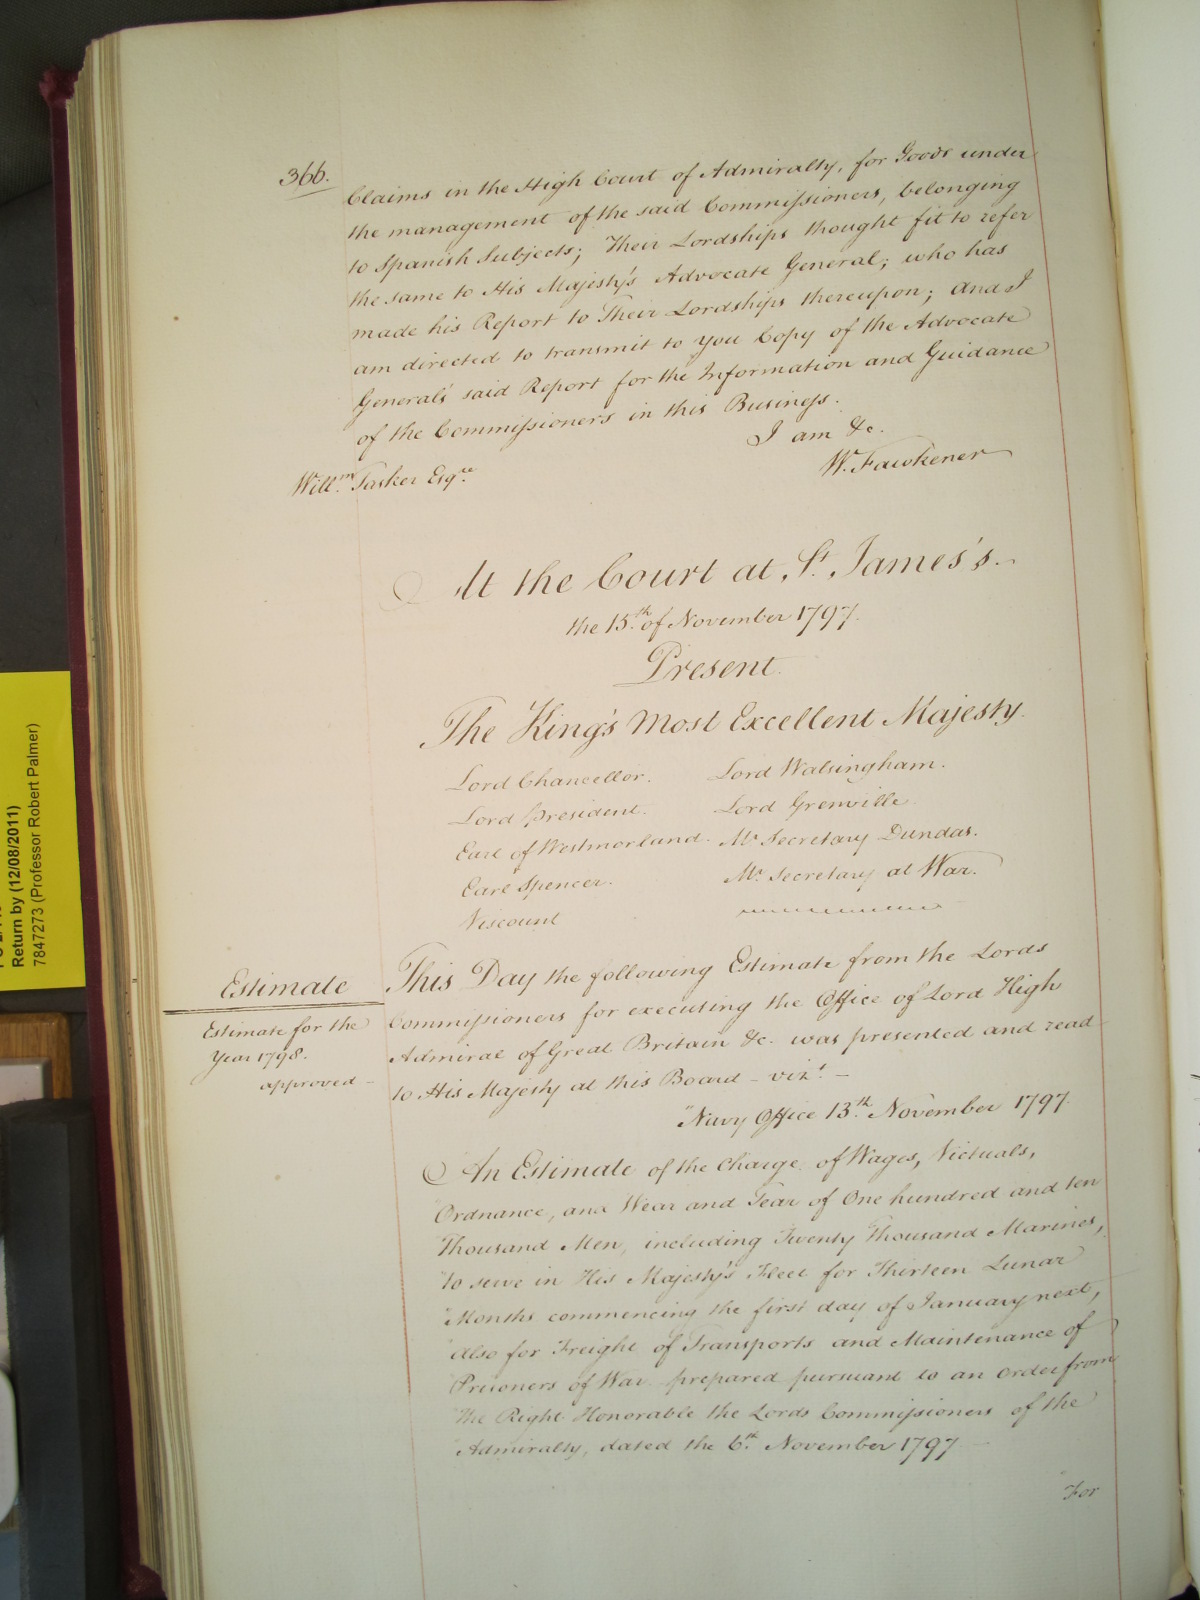 366.
Claims in the High Court of Admiralty, for Goods under
the management of the said Commissioners, belonging
to Spanish Subjects; Their Lordships thought fit to refer
the same to His Majesty's Advocate General; who has
made his Report to Their Lordships thereupon; and I
am directed to transmit to you Copy of the Advocate
General's said Report for the Information and Guidance
of the Commissioners in this Business.
I am &c.
W. Fawkener
Willm. Tasker Esqre.
At the Court at St. James's.
the 15th. of November 1797.
Present.
The King's Most Excellent Majesty.
Lord Chancellor. Lord Walsingham.
Lord President. Lord Grenville
Earl of Westmorland. Mr. Secretary Dundas.
Earl Spencer. Mr. Secretary at War.
Viscount
Estimate
Estimate for the
Year 1798.
approved -
This Day the following Estimate from the Lords
Commissioners for executing the Office of Lord High
Admiral of Great Britain &c. was presented and read
to His Majesty at this Board - vizt. -
"Navy Office 13th. November 1797.
An Estimate of the Charge of Wages, Victuals,
"Ordnance, and Wear and Tear of One hundred and ten
"Thousand Men, including Twenty Thousand Marines,
"to serve in His Majesty's Fleet for Thirteen Lunar
"Months commencing the first day of January next,
"also for Freight of Transports and Maintenance of
"Prisoners of War prepared pursuant to an Order from
"the Right Honorable the Lords Commissioners of the
"Admiralty, dated the 6th. November 1797 -
"For
Return by (12/08/2011)
7847273 (Professor Robert Palmer)